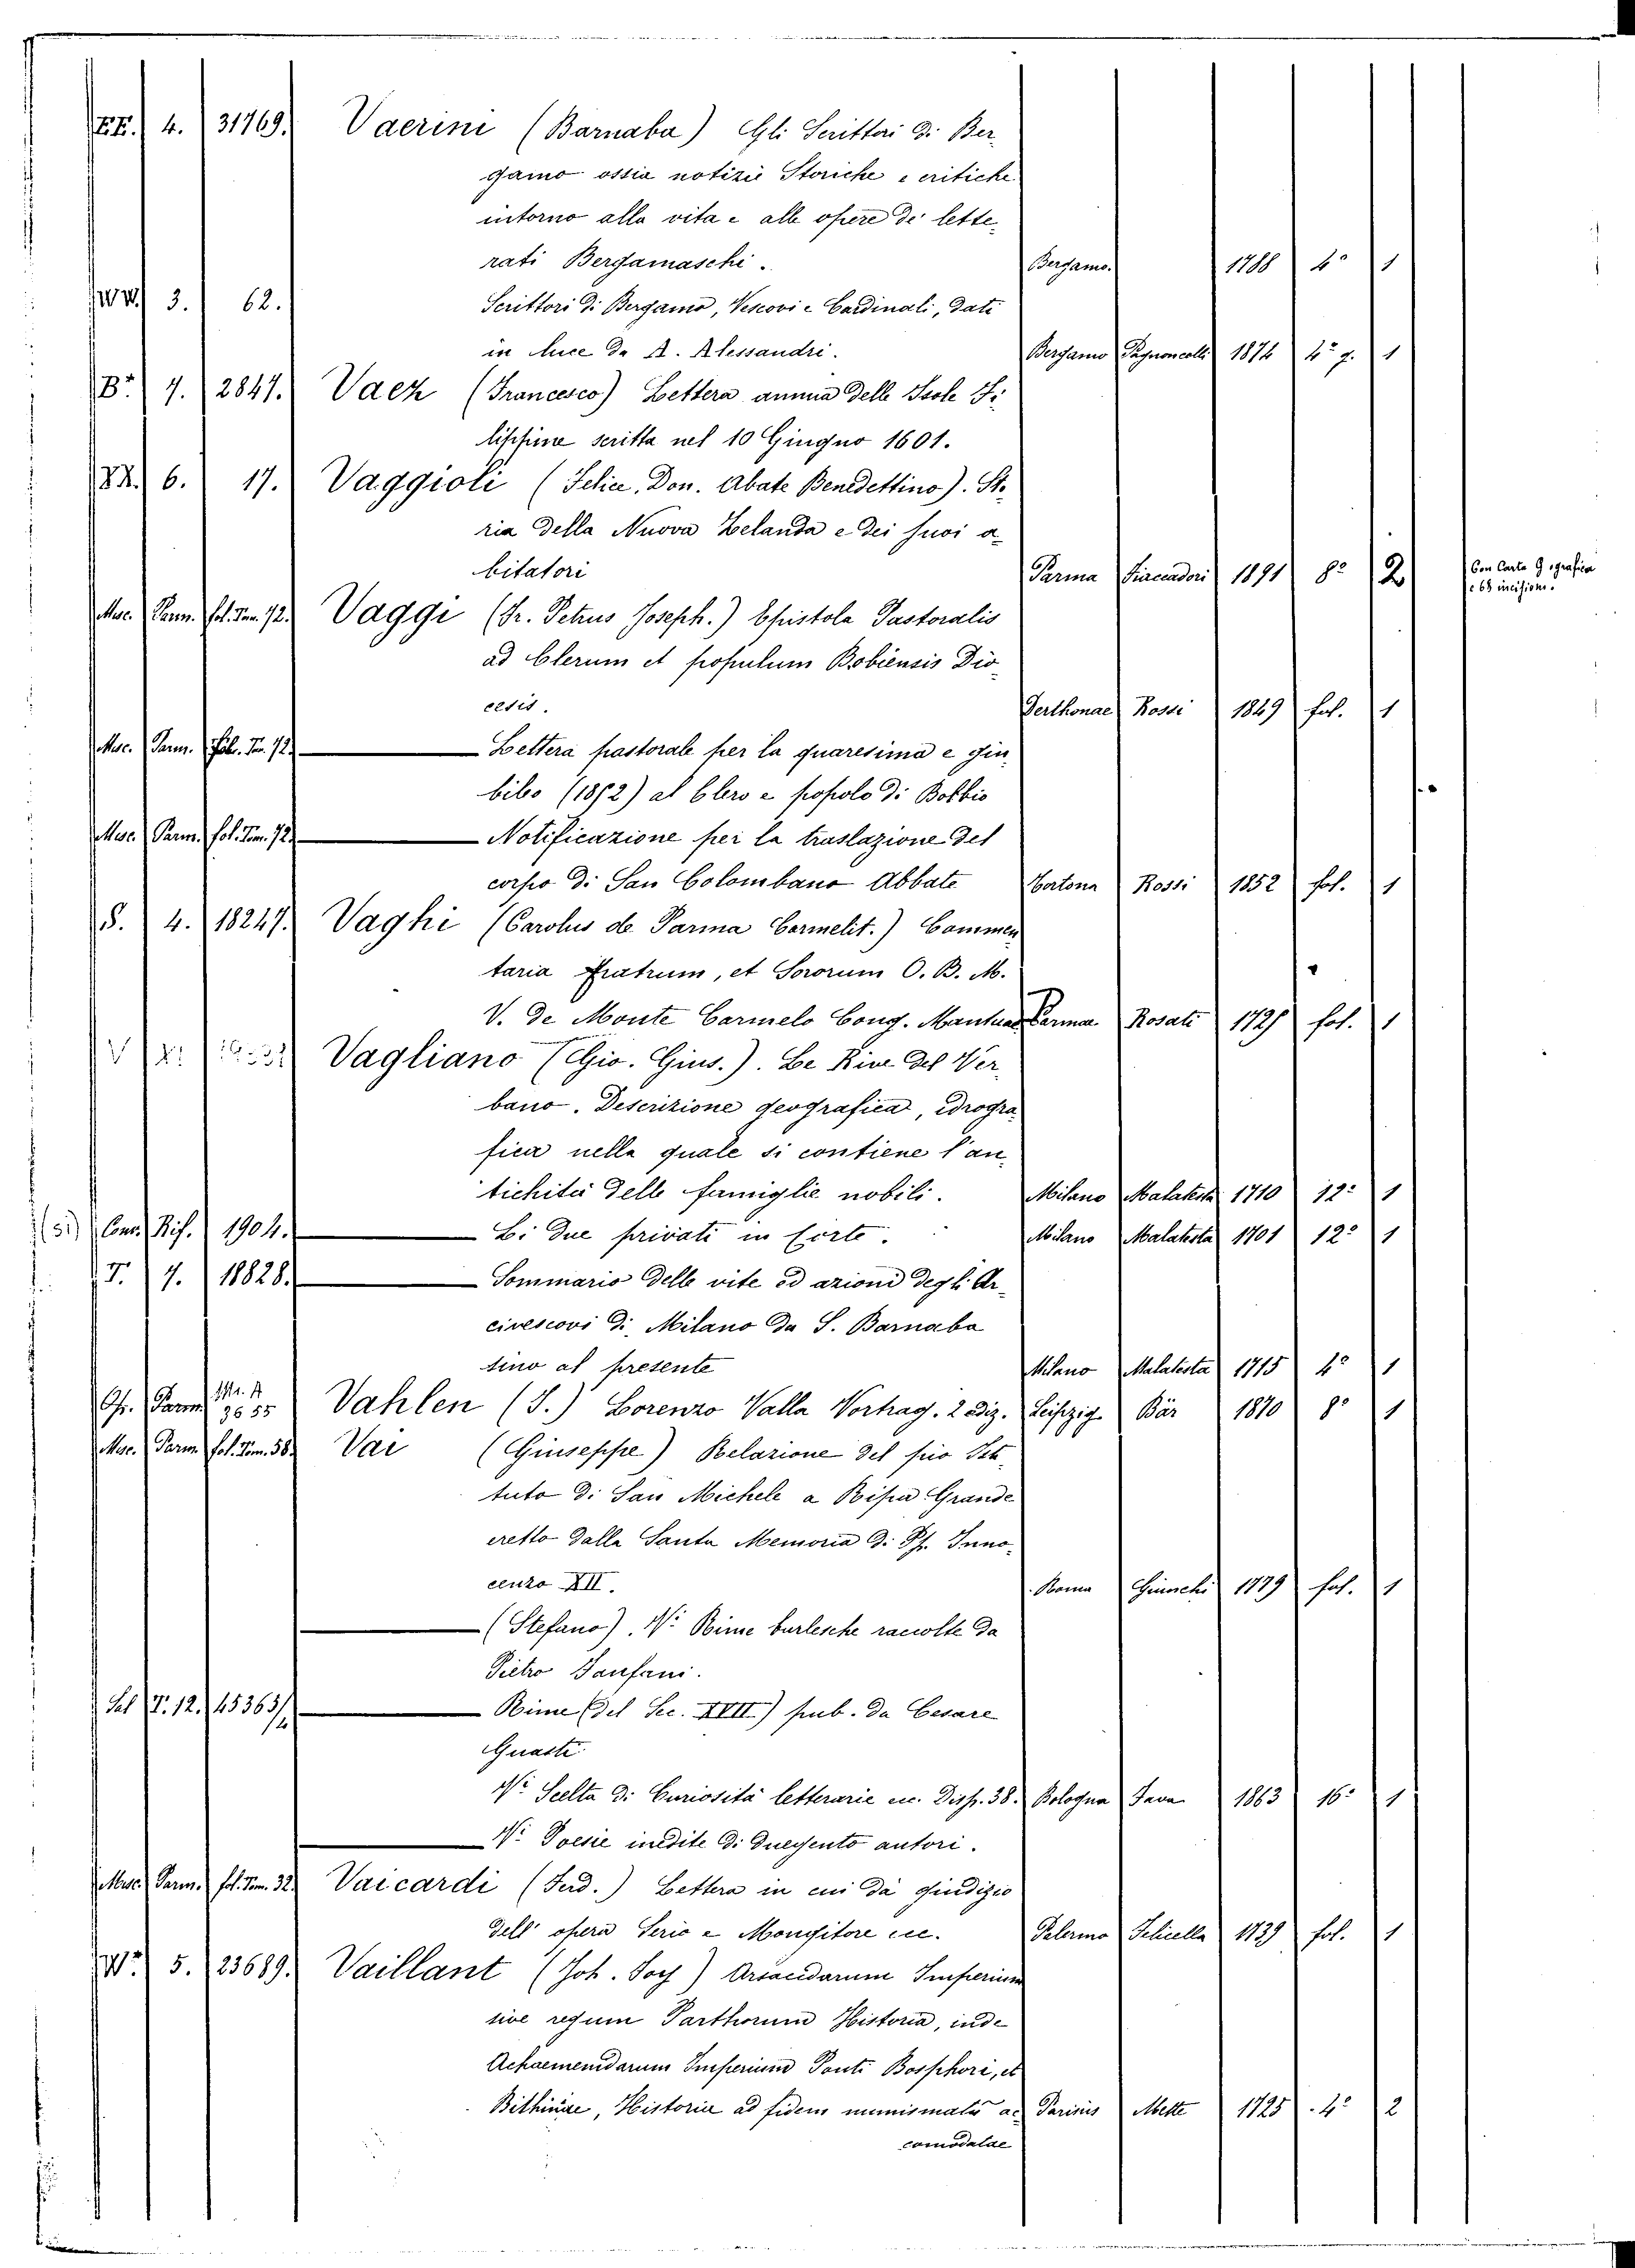 EE. 4. 31769. Vaerini (Barnaba) Gli Scrittori di Ber-
gamo ossia notizie Storiche e critiche
intorno alla vita e alle opere di lette-
rati Bergamaschi. Bergamo. 1788 4º 1
WW. 3. 62. Scrittori di Bergamo, Vescovi e Cardinali, dati
in luce da A. Alessandri. Bergamo Pagnoncelli 1874 4º g. 1
Bº 7. 2847. Vaez (Francesco) Lettera annua delle Isole Fi-
lippine scritta nel 10 Giugno 1601.
6. 17. Vaggioli (Felice, Don. Abate Benedettino). Sto-
ria della Nuova Zelanda e dei suoi a-
bitatori Parma Fiaccadori 1891 8º 2 Con Carta Geografica
e 68 incisioni.
Misc. Parm. fol. Tom. 72. Vaggi (Fr. Petrus Joseph.) Epistola Pastoralis
ad Clerum et populum Bobiensis Dio-
cesis. Derthonae Rossi 1849 fol. 1
Misc. Parm. fol. Tom. 72. Lettera pastorale per la quaresima e giu-
bileo (1852) al Clero e popolo di Bobbio
Misc. Parm. fol. Tom. 72. Notificazione per la traslazione del
corpo di San Colombano Abbate Tortona Rossi 1852 fol. 1
S. 4. 18247. Vaghi (Carolus de Parma Carmelit.) Commen
taria Fratrum, et Sororum O. B. M.
V. de Monte Carmelo Cong. Mantuae Parmae Rosati 1725 fol. 1
V Vagliano (Gio. Gius.). Le Rive del Ver-
bano. Descrizione geografica, idrogra-
fica nella quale si contiene l'an-
tichità delle famiglie nobili. Milano Malatesta 1710 12º 1
(51) Conv. Rif. 1904. Li due privati in Corte. Milano Malatesta 1701 12º 1
T. 7. 18828. Sommario delle vite ed azioni degli Ar-
civescovi di Milano da S. Barnaba
sino al presente Milano Malatesta 1715 4º 1
Op. Parm. 3655 Vahlen (J.) Lorenzo Valla Vortrag. 2 ediz. Leipzig. Bär 1870 8º 1
Misc. Parm. fol. Tom. 58. Vai (Giuseppe) Relazione del pio Isti-
tuto di San Michele a Ripa Grande
eretto dalla Santa Memoria di Pp. Inno-
cenzo XII. Roma Ginnchi 1779 fol. 1
(Stefano). Vº Rime burlesche raccolte da
Pietro Fanfani.
Sal T. 12. 45363/ Rime (del Sec. XVII) pub. da Cesare
Guasti.
Vº Scelta di Curiosità letterarie ec. Disp. 38. Bologna Fava 1863 16º 1
Vº Poesie inedite di duegento autori.
Misc. Parm. fol. Tom. 32. Vaicardi (Ferd.) Lettera in cui dà giudizio
dell' opera Serio e Mongitore ecc. Palermo Felicella 1739 fol. 1
Wº 5. 23689. Vaillant (Joh. Foy) Arsacidarum Imperium
sive regum Parthorum Historia, inde
Achaemenidarum Imperium Ponti Bosphori, et
Bithiniae, Historia ad fidem numismatū ac Parisiis Mette 1725 4º 2
comodatae